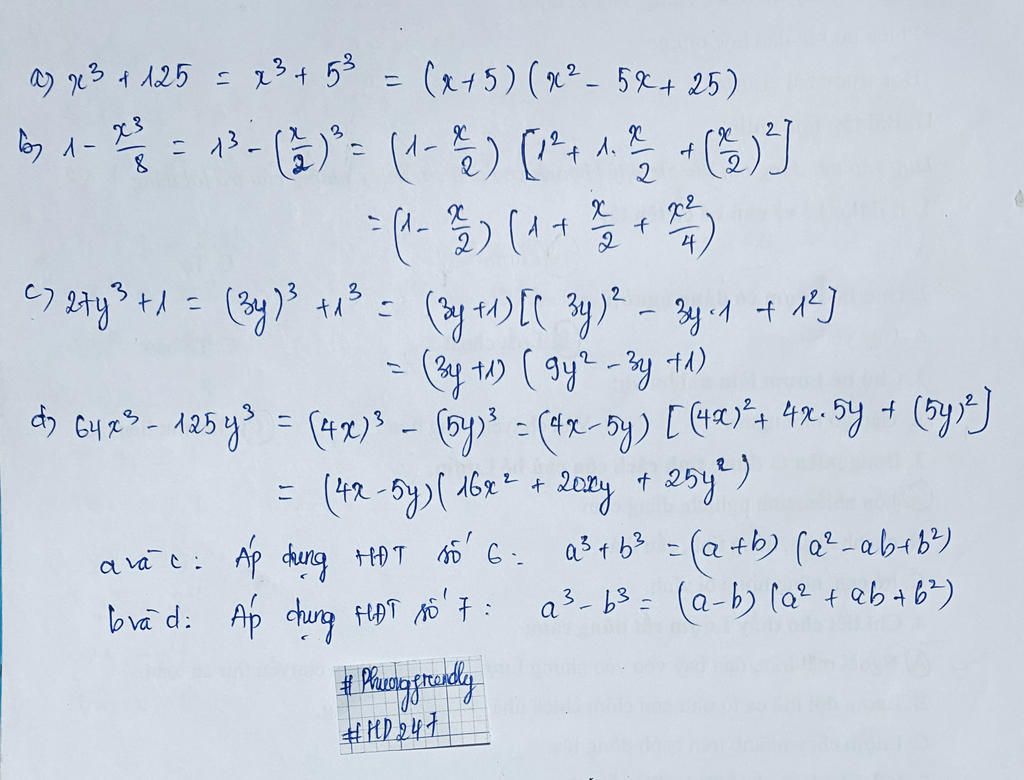 a) x³ + 125 = x³ + 5³ = (x+5) (x² - 5x + 25)
b) 1 - x³/8 = 1³ - (x/2)³ = (1 - x/2) [1² + 1. x/2 + (x/2)²]
= (1 - x/2) (1 + x/2 + x²/4)
c) 27y³ + 1 = (3y)³ + 1³ = (3y+1) [(3y)² - 3y.1 + 1²]
= (3y+1) (9y² - 3y + 1)
d) 64x³ - 125y³ = (4x)³ - (5y)³ = (4x-5y) [(4x)² + 4x.5y + (5y)²]
= (4x-5y) (16x² + 20xy + 25y²)
a và c: Áp dụng HĐT số 6: a³ + b³ = (a+b) (a² - ab + b²)
b và d: Áp dụng HĐT số 7: a³ - b³ = (a-b) (a² + ab + b²)
# Phuongfrendly
# HD247